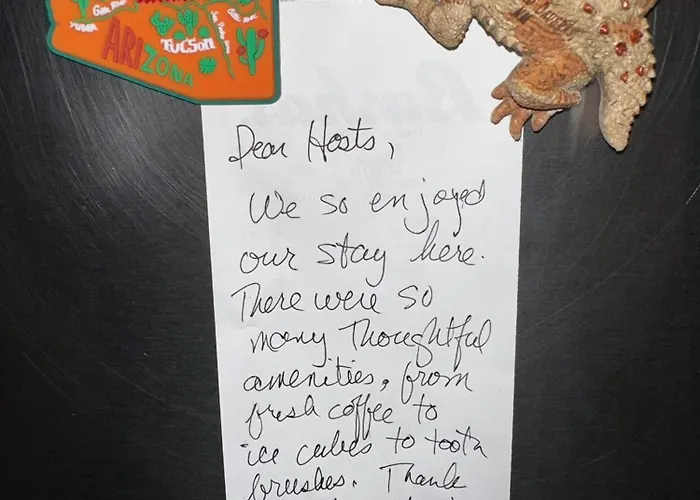 YUMA
ARIZONA
TUCSON
Dear Hosts,
We so enjoyed
our stay here.
There were so
many Thoughtful
amenities, from
fresh coffee to
ice cubes to tooth
brushes. Thank